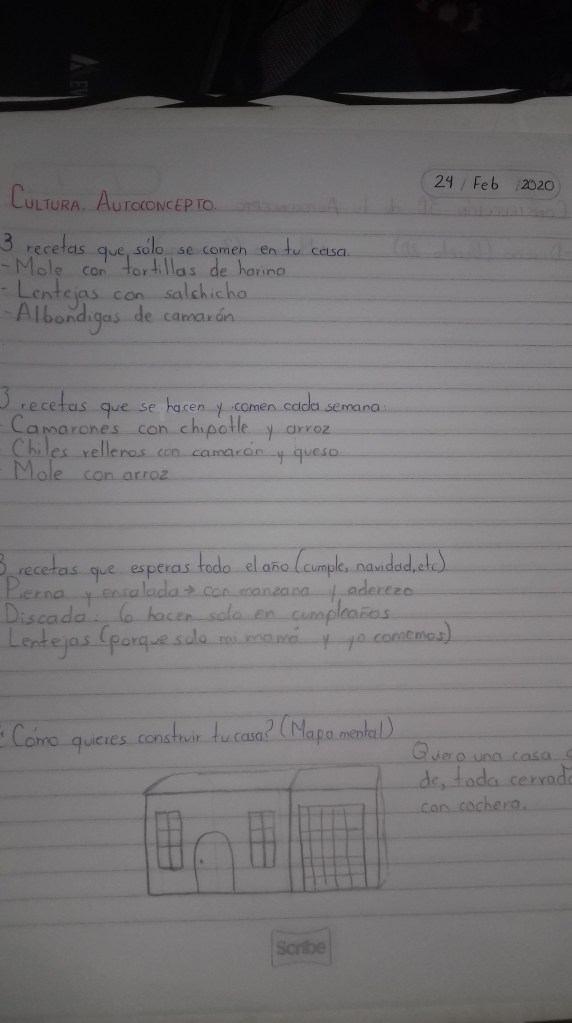 24 / Feb / 2020
CULTURA. AUTOCONCEPTO.
3 recetas que sólo se comen en tu casa.
- Mole con tortillas de harina
- Lentejas con salchicha
- Albondigas de camarón
3 recetas que se hacen y comen cada semana.
Camarones con chipotle y arroz
Chiles rellenos con camarón y queso
Mole con arroz
3 recetas que esperas todo el año (cumple, navidad, etc)
Pierna y ensalada → con manzana y aderezo
Discada. Lo hacen solo en cumpleaños
Lentejas (porque solo mi mamá y yo comemos)
Cómo quieres construir tu casa? (Mapa mental)
Quero una casa
de, toda cerrada
con cochera.
Scribe